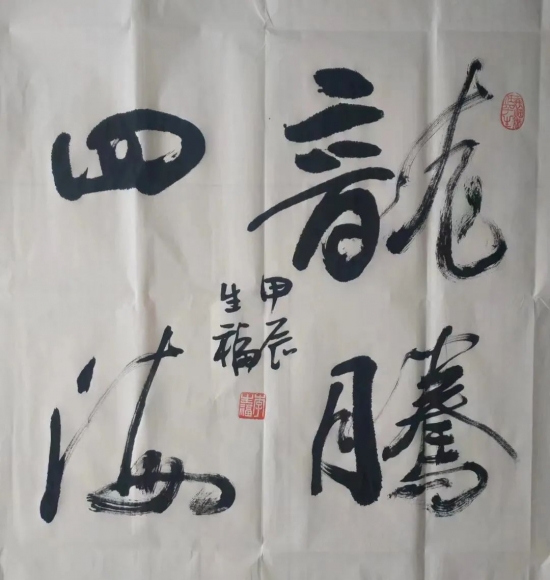 龍騰
四海
甲辰
生福